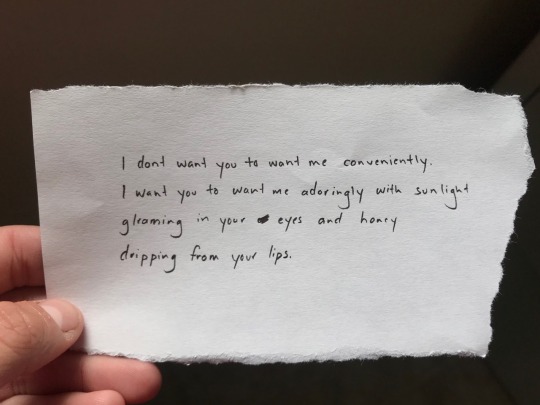 I dont want you to want me conveniently.
I want you to want me adoringly with sunlight
gleaming in your eyes and honey
dripping from your lips.